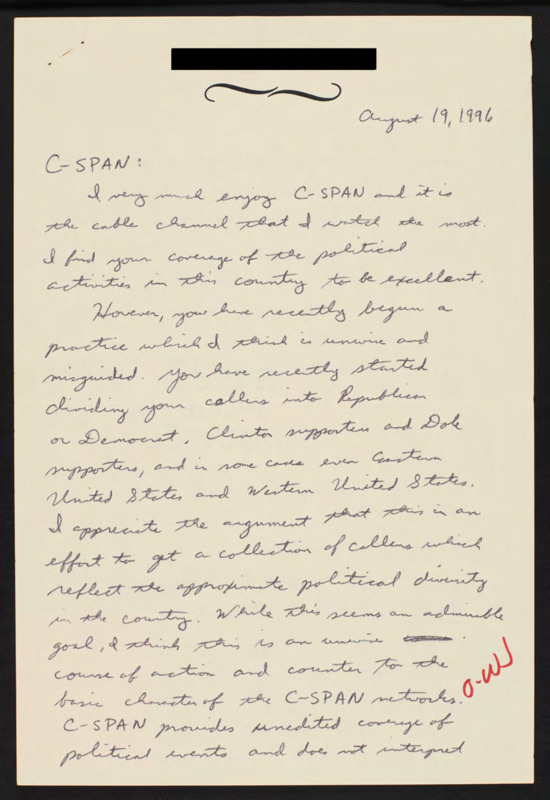 August 19, 1996
C-SPAN:
I very much enjoy C-SPAN and it is
the cable channel that I watch the most.
I find your coverage of the political
activities in this country to be excellent.
However, you have recently begun a
practice which I think is unwise and
misguided. You have recently started
dividing your callers into Republican
or Democrat, Clinton supporters and Dole
supporters, and in some cases even Eastern
United States and Western United States.
I appreciate the argument that this is an
effort to get a collection of callers which
reflect the approximate political diversity
in the country. While this seems an admirable
goal, I think this is an unwise
course of action and counter to the
basic character of the C-SPAN networks.
C-SPAN provides unedited coverage of
political events and does not interpret